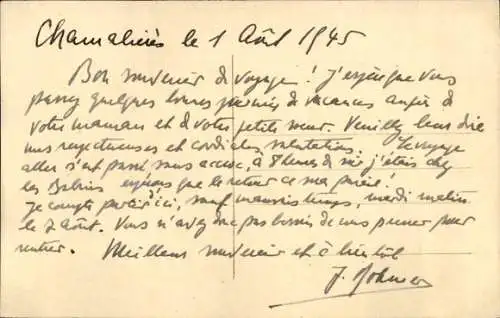 Chamalières le 1 Août 1945
Bon souvenir de voyage ! J'espère que vous
passez quelques bonnes journées de vacances auprès de
votre maman et de votre petite sœur. Veuillez leur dire
mes respectueuses et cordiales salutations. Le voyage
aller s'est passé sans accroc, à 8 heures du soir j'étais chez
les espérons que le retour se passe pareil !
Je compte partir d'ici, sauf mauvais temps, mardi matin
le 7 août. Vous n'avez donc pas besoin de vous presser pour
rentrer. Meilleurs souvenirs et à bientôt
J.